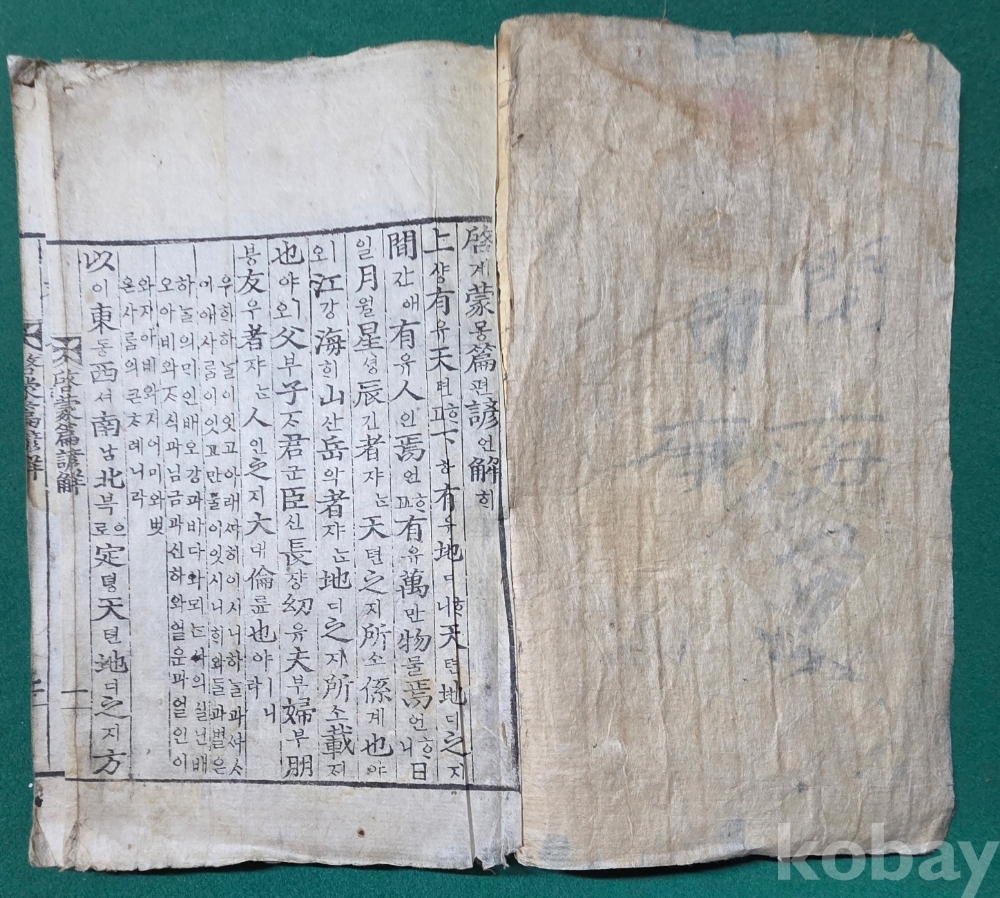 啓계蒙몽篇편諺언解ᄒᆡ
上샹有유天텬ᄒᆞ고下하有유地디ᄒᆞ니天텬地디之지
間간애有유人인焉언ᄒᆞ고有유萬만物물焉언ᄒᆞ니日
일月월星셩辰신者쟈ᄂᆞᆫ天텬之지所소係계也야
오江강海ᄒᆡ山산岳악者쟈ᄂᆞᆫ地디之지所소載ᄌᆡ
也야ㅣ오父부子ᄌᆞ君군臣신長쟝幼유夫부婦부朋
붕友우者쟈ᄂᆞᆫ人인之지大대倫륜也야ㅣ니라
우희하ᄂᆞᆯ이잇고아래ᄯᅡ히이시니하ᄂᆞᆯ과ᄯᅡᄉ
이에사ᄅᆞᆷ이잇고만물이잇시니ᄒᆡ와ᄃᆞᆯ과별은
하ᄂᆞᆯ의ᄆᆡ인배오강과바다와뫼ᄂᆞᆫᄯᅡ의실닌배
오아비와ᄌᆞ식과님금과신하와얼운과얼인이
와지아비와지어미와벗
은사ᄅᆞᆷ의큰ᄎᆞ례니라
以이東동西셔南남北북으로定뎡天텬地디之지方
啓蒙篇諺解 一
啓蒙篇諺解
kobay